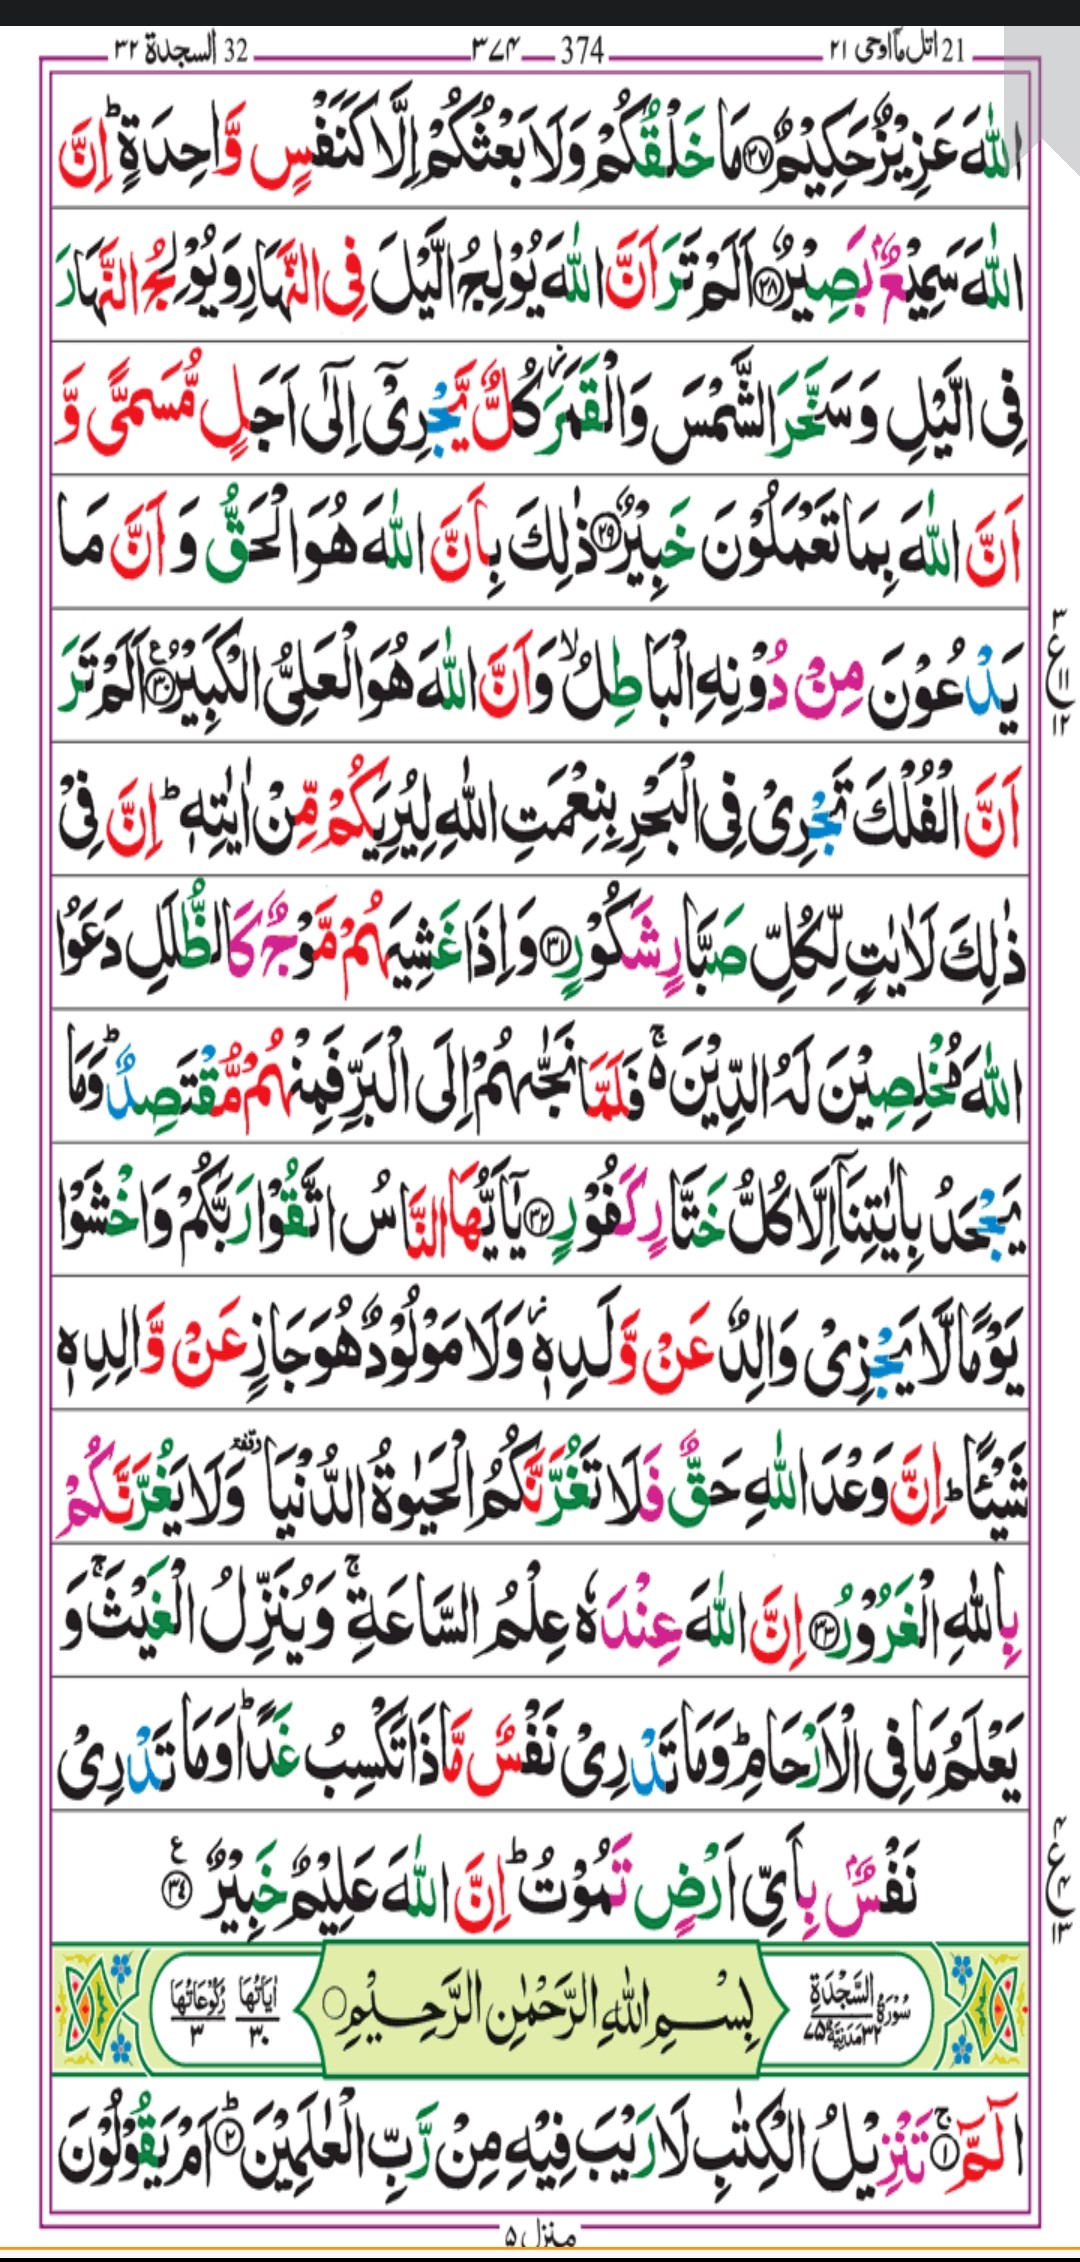 21 اتل مآ اوحی ۲۱ 374 ۳۷۴ 32 السجدة ۳۲
اللّٰهَ عَزِيْزٌ حَكِيْمٌ ﴿۲۷﴾ مَا خَلْقُكُمْ وَلَا بَعْثُكُمْ اِلَّا كَنَفْسٍ وَّاحِدَةٍ ؕ اِنَّ
اللّٰهَ سَمِيْعٌۢ بَصِيْرٌ ﴿۲۸﴾ اَلَمْ تَرَ اَنَّ اللّٰهَ يُوْلِجُ الَّيْلَ فِى النَّهَارِ وَيُوْلِجُ النَّهَارَ
فِى الَّيْلِ وَسَخَّرَ الشَّمْسَ وَالْقَمَرَ ز كُلٌّ يَّجْرِىْٓ اِلٰٓى اَجَلٍ مُّسَمًّى وَّ
اَنَّ اللّٰهَ بِمَا تَعْمَلُوْنَ خَبِيْرٌ ﴿۲۹﴾ ذٰلِكَ بِاَنَّ اللّٰهَ هُوَ الْحَقُّ وَ اَنَّ مَا
يَدْعُوْنَ مِنْ دُوْنِهِ الْبَاطِلُ ۙ وَاَنَّ اللّٰهَ هُوَ الْعَلِىُّ الْكَبِيْرُ ﴿۳۰﴾ ع اَلَمْ تَرَ
۳ ع ۱۱ ۱۲
اَنَّ الْفُلْكَ تَجْرِىْ فِى الْبَحْرِ بِنِعْمَتِ اللّٰهِ لِيُرِيَكُمْ مِّنْ اٰيٰتِهٖ ؕ اِنَّ فِىْ
ذٰلِكَ لَاٰيٰتٍ لِّكُلِّ صَبَّارٍ شَكُوْرٍ ﴿۳۱﴾ وَاِذَا غَشِيَهُمْ مَّوْجٌ كَالظُّلَلِ دَعَوُا
اللّٰهَ مُخْلِصِيْنَ لَهُ الدِّيْنَ ۚ فَلَمَّا نَجّٰىهُمْ اِلَى الْبَرِّ فَمِنْهُمْ مُّقْتَصِدٌ ؕ وَمَا
يَجْحَدُ بِاٰيٰتِنَآ اِلَّا كُلُّ خَتَّارٍ كَفُوْرٍ ﴿۳۲﴾ يٰٓاَيُّهَا النَّاسُ اتَّقُوْا رَبَّكُمْ وَاخْشَوْا
يَوْمًا لَّا يَجْزِىْ وَالِدٌ عَنْ وَّلَدِهٖ ز وَلَا مَوْلُوْدٌ هُوَ جَازٍ عَنْ وَّالِدِهٖ
شَيْئًا ؕ اِنَّ وَعْدَ اللّٰهِ حَقٌّ فَلَا تَغُرَّنَّكُمُ الْحَيٰوةُ الدُّنْيَا وقفة وَلَا يَغُرَّنَّكُمْ
بِاللّٰهِ الْغَرُوْرُ ﴿۳۳﴾ اِنَّ اللّٰهَ عِنْدَهٗ عِلْمُ السَّاعَةِ ۚ وَيُنَزِّلُ الْغَيْثَ ۚ وَ
يَعْلَمُ مَا فِى الْاَرْحَامِ ؕ وَمَا تَدْرِىْ نَفْسٌ مَّاذَا تَكْسِبُ غَدًا ؕ وَمَا تَدْرِىْ
نَفْسٌۢ بِاَىِّ اَرْضٍ تَمُوْتُ ؕ اِنَّ اللّٰهَ عَلِيْمٌ خَبِيْرٌ ﴿۳۴﴾ ع
۴ ع ۴ ۱۳
سُوْرَةُ السَّجْدَةِ ۳۲ مَدَنِيَّةٌ ۷۵ بِسْمِ اللّٰهِ الرَّحْمٰنِ الرَّحِيْمِ اٰيَاتُهَا ۳۰ رُكُوْعَاتُهَا ۳
الٓمّٓ ۚ﴿۱﴾ تَنْزِيْلُ الْكِتٰبِ لَا رَيْبَ فِيْهِ مِنْ رَّبِّ الْعٰلَمِيْنَ ؕ﴿۲﴾ اَمْ يَقُوْلُوْنَ
منزل ۵